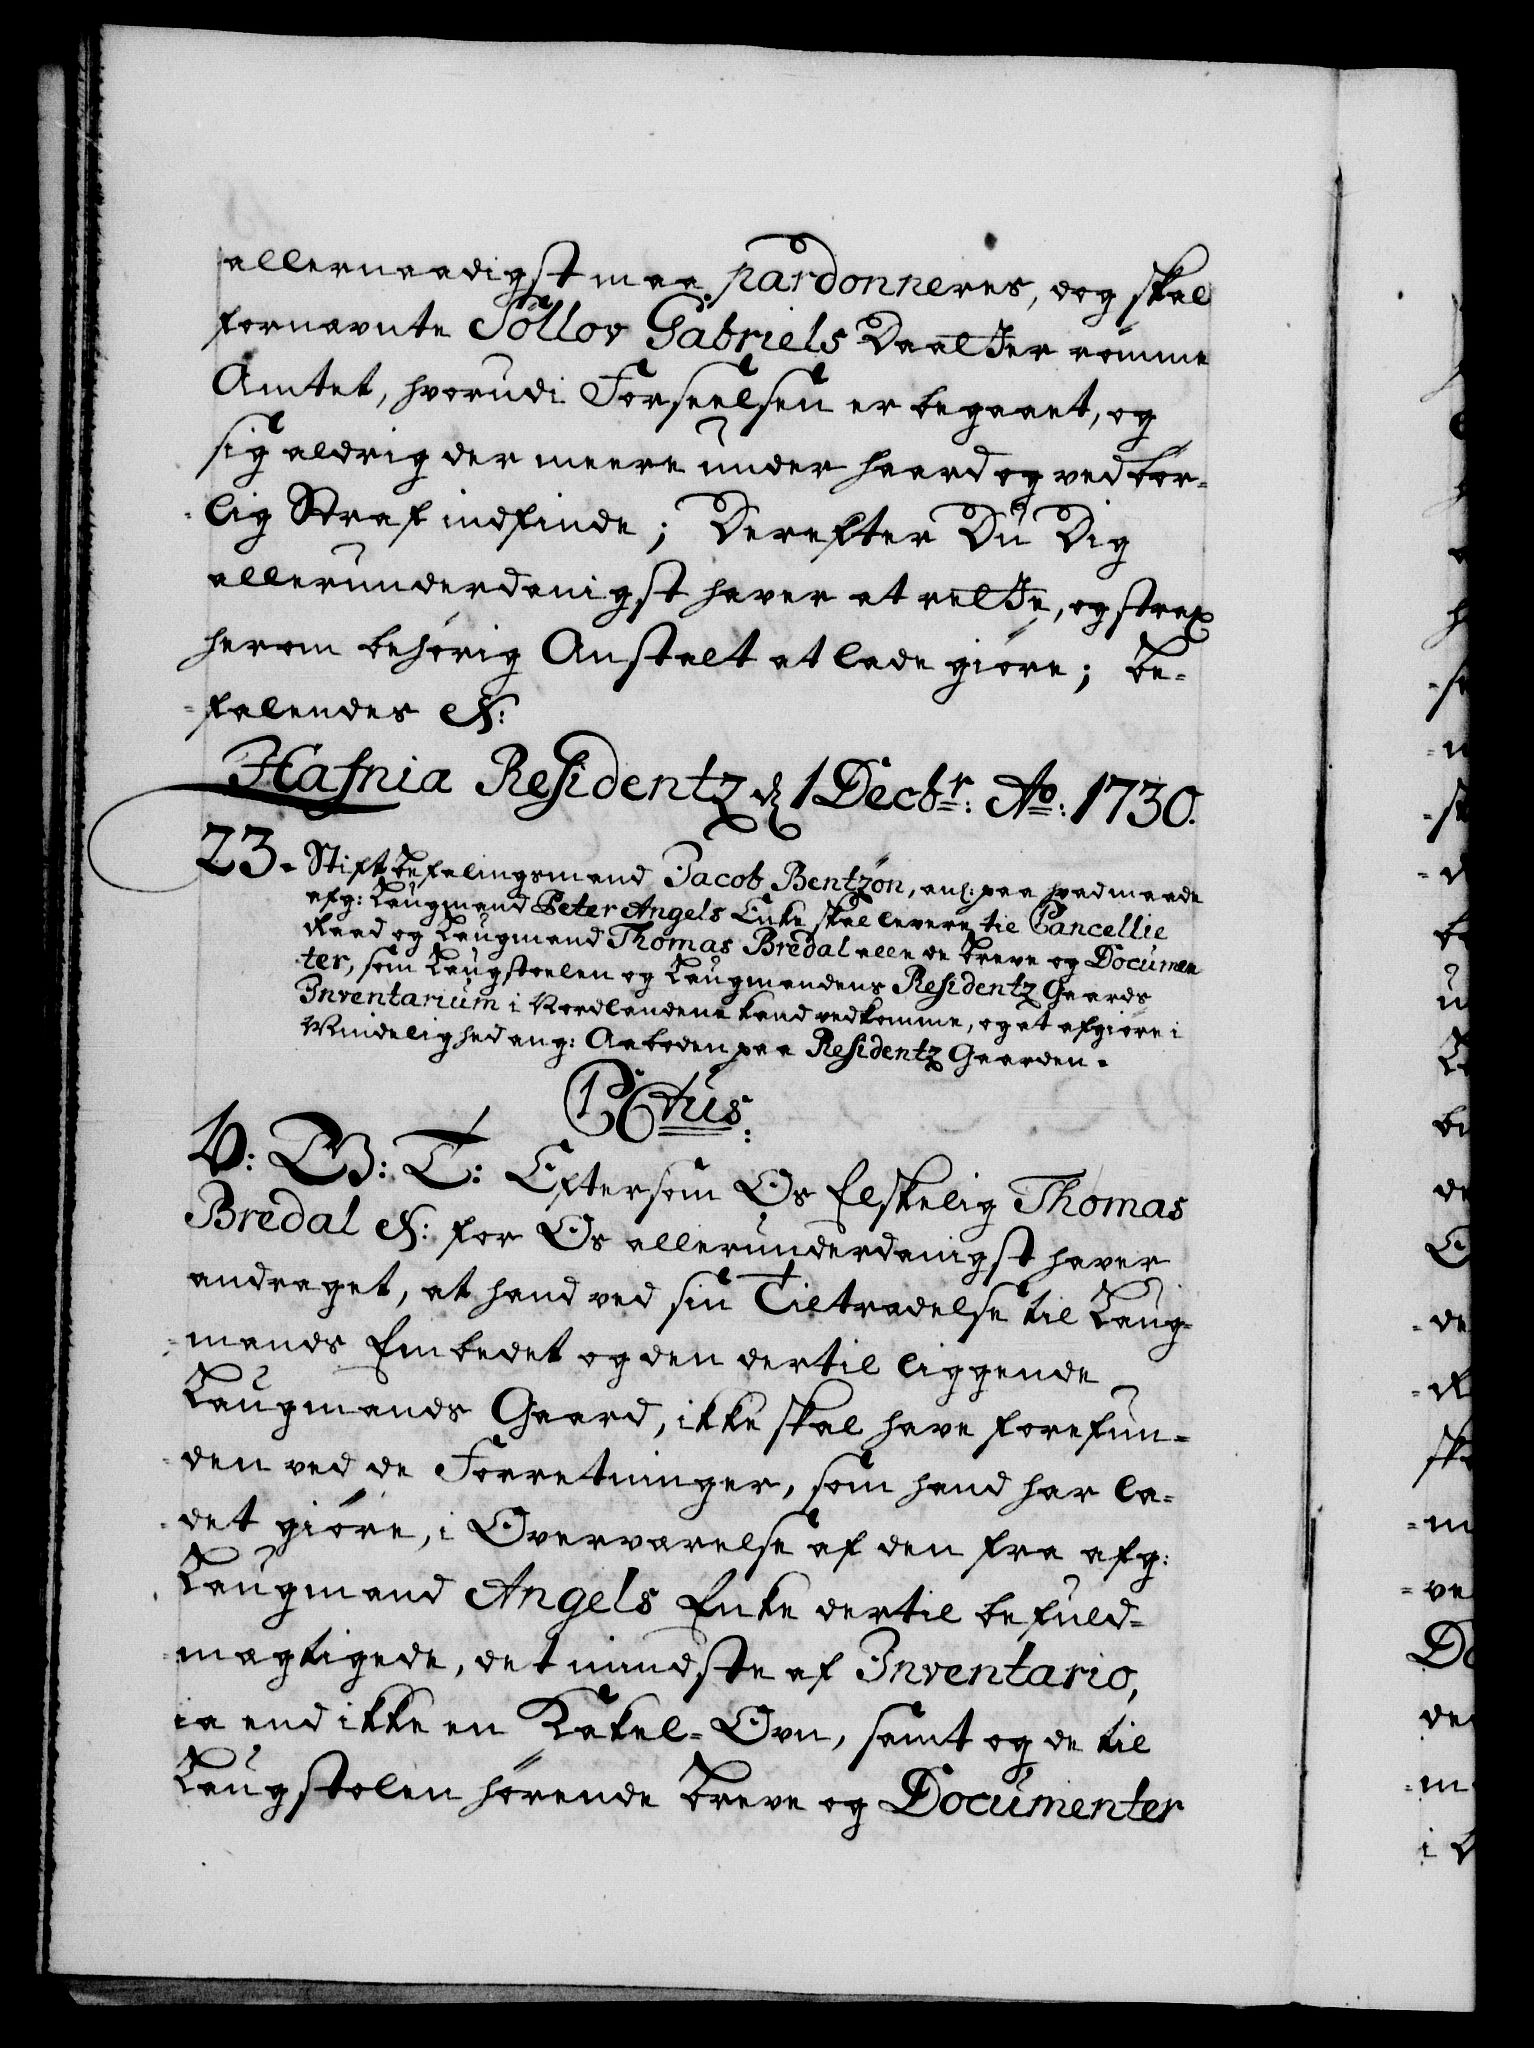 allernaadigst maa pardonneres, dog skal
fornævnte Söllov Gabriels Daatter römme
Amtet, hvorudi Forseelsen er begaaet, og
sig aldrig der meere under haard og vedbör-
-lig Straf indfinde; Derefter Du Dig
allerunderdanigst haver at rette, og strax
herom behörig Anstalt at lade giöre; Be-
-falendes &:
Hafnia Residentz d. 1 Decbr: Ao: 1730.
23. Stiftbefalingsmand Jacob Bentzon, anl: paa hvad maade
afg: Laugmand Peter Angels Enke skal levere til Cancellie
Raad og Laugmand Thomas Bredal alle de Breve og Documen
ter, som Laugstoelen og Laugmandens Residentz Gaards
Inventarium i Nordlandene kand vedkomme, og at afgiöre i
Mindelighed ang: Aaboden paa Residentz Gaarden.
PCtus:
V: G: T: Eftersom Os Elskelig Thomas
Bredal &: for Os allerunderdanigst haver
andraget, at hand ved sin Tiltrædelse til Laug-
-mands Embedet og den dertil liggende
Laugmands Gaard, ikke skal have forefun-
-den ved de Forretninger, som hand har la-
-det giöre, i Overværelse af den fra afg:
Laugmand Angels Enke dertil befuld-
-mægtigede, det mindste af Inventario,
ia end ikke en Kakel-Ovn, samt og de til
Laugstolen hörende Breve og Documenter